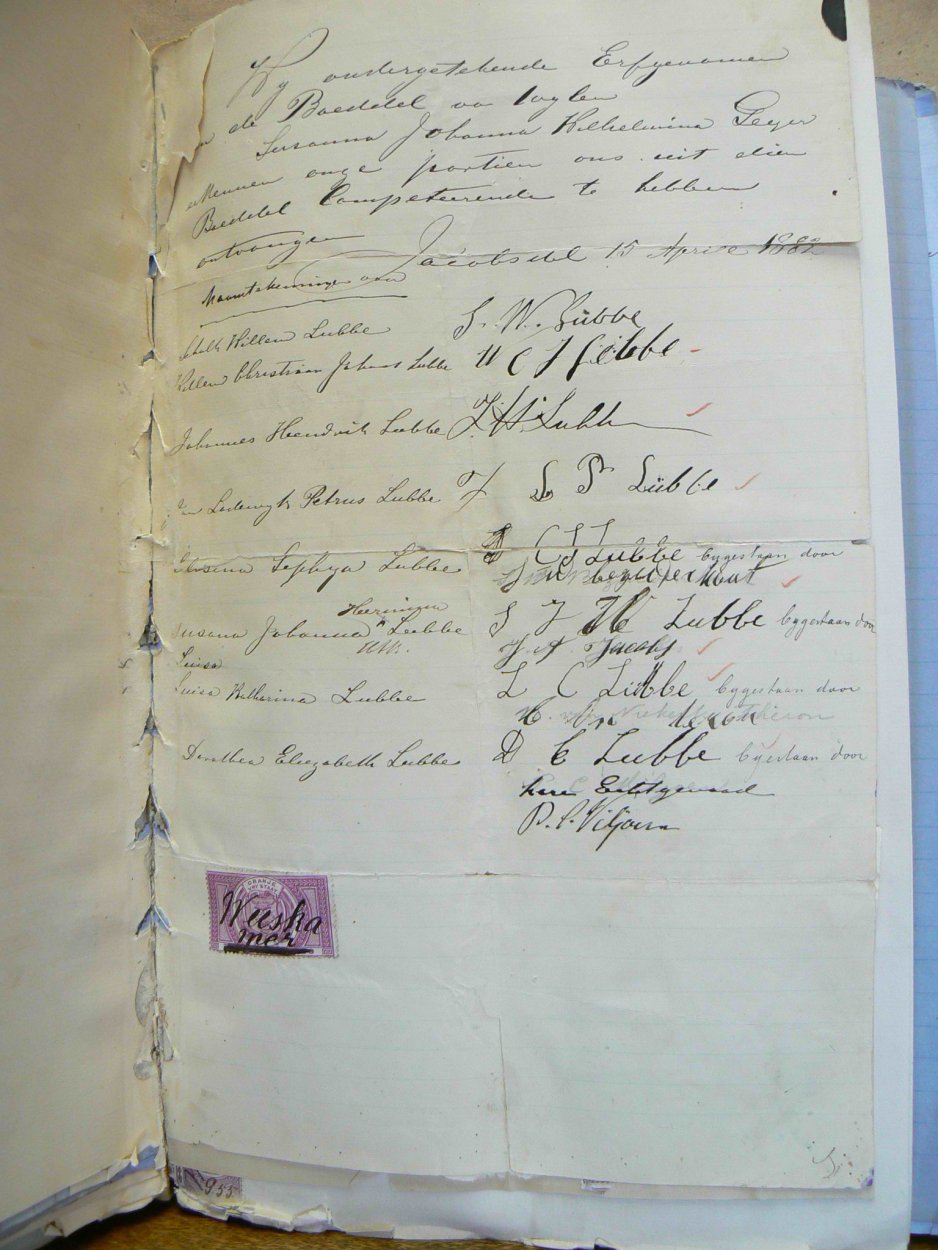 Wy ondergetekende Erfgenamen
in de Boeddel va wylen
Susanna Johanna Wilhelmina Geyer
erkennen onze portien ons uit dien
Boeddel Competeerende te hebben
ontvangen
Jacobsdal 15 April 1882
Naamtekeningen van
Schalk Willem Lubbe S. W. Lübbe
Willem Christiaan Johans Lubbe W C J Lübbe
Johannes Hendrik Lubbe J. H. Lubbe
Jan Lodewyk Petrus Lubbe J L P Lübbe
Sophya Lubbe C S Lubbe bygestaan door
Heeringen
Susana Johanna ^ Lubbe S J W Lubbe bygestaan door
J. A. Jacobs
Luisa
Luisa Katharina Lubbe L C Lübbe bygestaan door
Dorothea Elizabeth Lubbe D E Lubbe bygestaan door
haar Echtgenoot
P. C. Viljoen
ORANJE
VRY STAAT
Weeska
mer
955